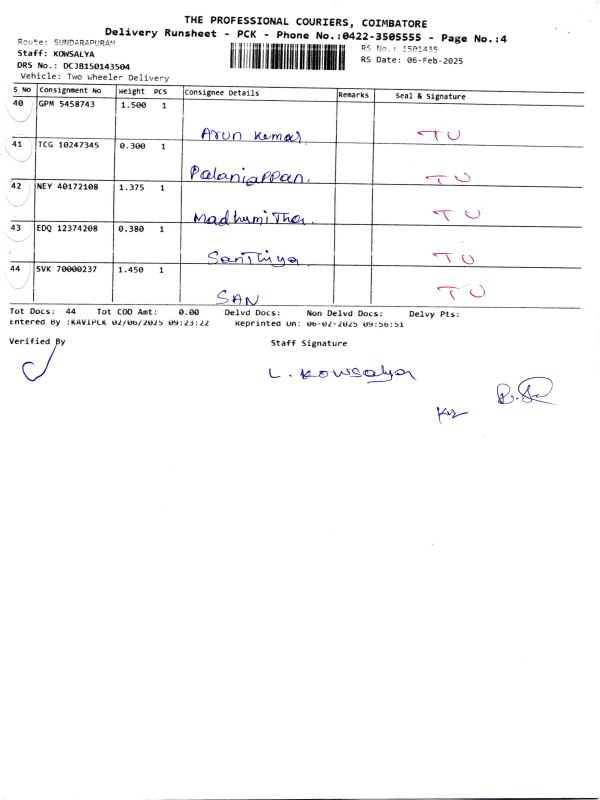 THE PROFESSIONAL COURIERS, COIMBATORE
Delivery Runsheet - PCK - Phone No.:0422-3505555 - Page No.:4
Route: SUNDARAPURAM
RS No.: 1501435
Staff: KOWSALYA
RS Date: 06-Feb-2025
DRS No.: DCJB150143504
Vehicle: Two Wheeler Delivery
S No Consignment No Weight PCS Consignee Details Remarks Seal & Signature
40 GPM 5458743 1.500 1
Arun Kumar. TU
41 TCG 10247345 0.300 1
Palaniappan. TU
42 NEY 40172108 1.375 1
Madhumitha. TU
43 EDQ 12374208 0.380 1
Santhiya TU
44 SVK 70000237 1.450 1
SAN TU
Tot Docs: 44 Tot COD Amt: 0.00 Delvd Docs: Non Delvd Docs: Delvy Pts:
Entered By :KAVIPCK 02/06/2025 09:23:22 Reprinted On: 06-02-2025 09:56:51
Verified By Staff Signature
L. Kowsalya